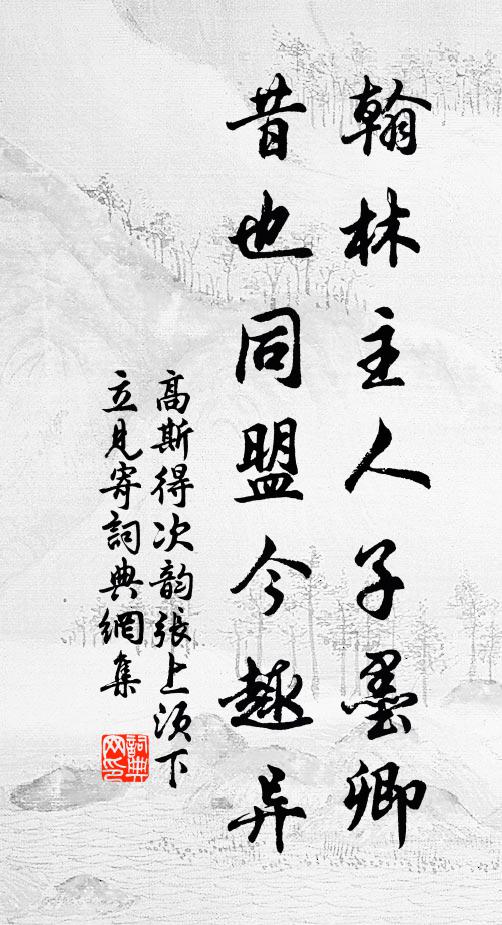 翰林主人子墨卿
昔也同盟今趣异
高斯得次韵张上须下
立见寄詞典網集
詞典網印